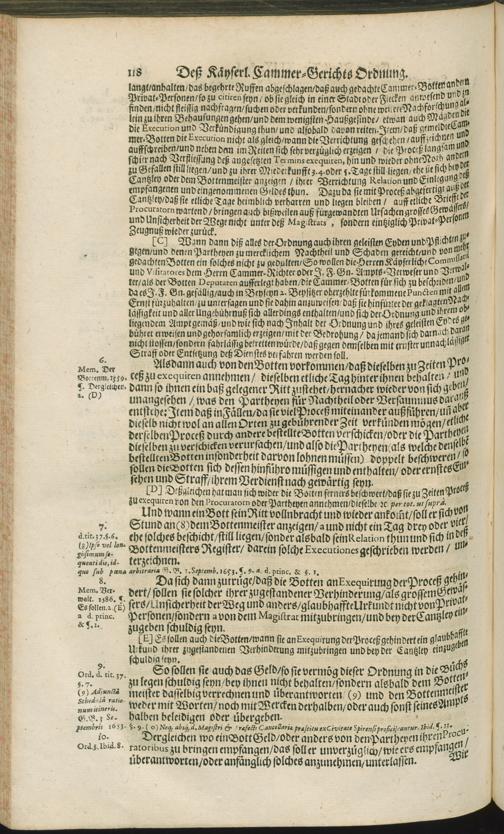 118 Deß Käyserl. Cammer-Gerichts Ordnung.
langt/anhalten/das begehrte Ruffen abgeschlagen/daß auch gedachte Cammer-Botten andern
Privat-Personen/so zu citiren seyn/ob sie gleich in einer Stadt oder Flecken anwesend und zu
finden/nicht fleissig nachfragen/suchen oder verkunden/sondern ohne weitere Nachforschung al-
lein zu ihren Behausungen gehen/und dem wenigsten Haußgesinde/etwan auch Mägden die
die Execution und Verkündigung thun/und alsobald davon reiten. Item/daß gemeldte Cam-
mer-Botten die Execution nicht als gleich/wann die Verrichtung geschehen/auffzeichnen und
auffschreiben/und neben dem im Reiten sich sehr verzüglich erzeigen/die Proceß langsam und
schier nach Verfliessung deß angesetzten Termins exequiren, hin und wieder ohne Noth andern
zu Gefallen still liegen/und zu ihrer Wiederkunfft 3. 4. oder 5. Tage still liegen/ehe sie sich bey der
Cantzley oder dem Bottenmeister anzeigen/ihrer Verrichtung Relation und Einlegung deß
empfangenen und eingenommenen Geldes thun. Dazu da sie mit Proceß abgefertigt auß der
Cantzley/daß sie etliche Tage heimblich verharren und liegen bleiben/auff etliche Brieffe der
Procuratorn warten/bringen auch bißweilen auß fürgewandten Ursachen grosses Gewässers/
und Unsicherheit der Wege nicht unter deß Magistrats, sondern eintziglich Privat-Personen
Zeugnuß wieder zurück.
[C] Wann dann diß alles der Ordnung auch ihren geleisten Eyden und Pflichten zu-
gegen/und denen Partheyen zu mercklichem Nachtheil und Schaden gereicht/und von mehr
gedachten Botten ein solches nicht zu gedulten/So wollen die Herren Käyserliche Commissarii
und Visitatores dem Herrn Cammer-Richter oder J. F. Gn. Ampts-Verweser und Verwal-
ter/als der Botten Deputaten aufferlegt haben/die Cammer-Botten für sich zu bescheiden/und
da es J. F. Gn. gefällig/auch im Beyseyn 2. Beysitzer oberzehlte fürkommene Puncten mit allem
Ernst fürzuhalten/zu untersagen und sie dahin anzuweisen/daß sie hinfürter der geklagten Nach-
lässigkeit und aller Ungebührnuß sich allerdings enthalten/und sich der Ordnung und ihrem ob-
liegendem Ampt gemäß/und wie sich nach Inhalt der Ordnung und ihres geleisten Eydes ge-
bühret erweisen und gehorsamlich erzeigen/mit der Bedrohung/da jemand sich darnach daran
nicht stossen/sondern fahrlässig betretten würde/daß gegen demselben mit ernster unnachlässiger
Straff oder Entsetzung deß Dienstes verfahren werden soll.
6.
Mem. Der
Bottenm. 1559.
§. Dergleichen.
2. (D)
Als dann auch von den Botten vorkommen/daß dieselben zu Zeiten Pro-
ceß zu exequiren annehmen/dieselben etliche Tag hinter ihnen behalten/und
dann so ihnen ein baß gelegener Ritt zustehet/hernacher wieder von sich geben/
unangesehen/was den Partheyen für Nachtheil oder Versaumnus darauß
entstehe: Item daß in Fällen/da sie viel Proceß miteinander außführen/und aber
dieselb nicht wol an allen Orten zu gebührender Zeit verkünden mögen/etliche
derselben Proceß durch andere bestellte Botten verschicken/oder die Partheyen
dieselben zu verschicken verursachen/und also die Partheyen (als welche denselbe
bestellten Botten insonderheit darvon lohnen müssen) doppelt beschweren/so
sollen die Botten sich dessen hinführo müssigen und enthalten/oder ernstes Ein-
sehen und Straff/ihrem Verdienst nach gewärtig seyn.
[D] Deßgleichen hat man sich wider die Botten ferners beschwert/daß sie zu Zeiten Proceß
zu exequiren von den Procuratorn oder Partheyen annehmen/dieselbe &c. per tot. ut suprà.
7.
d. tit. 37. §. 6.
(8) Ipso vel lon-
gissimum se-
quenti die, id-
que sub pœna arbitraria G. B. 1. Septemb. 1653. §. 9. a. d. princ. & §. 1.
Und wann ein Bott sein Ritt vollnbracht und wieder ankomt/soll er sich von
Stund an (8) dem Bottenmeister anzeigen/und nicht ein Tag drey oder vier/
ehe solches beschicht/still liegen/sonder alsbald sein Relation thun und sich in deß
Bottenmeisters Register/darein solche Executiones geschrieben werden/un-
terzeichnen.
8.
Mem. Ver-
walt. 1586. §.
Es sollen. 2. (E)
a d. princ.
& §. 1.
Da sich dann zutrüge/daß die Botten an Exequirung der Proceß gehin-
dert/sollen sie solcher ihrer zugestandener Verhinderung/als grossem Gewäs-
sers/Unsicherheit der Weg und anders/glaubhaffte Urkundt nicht von Privat-
Personen/sondern a von dem Magistrat mitzubringen/und bey der Cantzley ein-
zugeben schuldig seyn.
[E] Es sollen auch die Botten/wann sie an Exequirung der Proceß gehindert ein glaubhaffte
Urkund ihrer zugestandenen Verhinderung mitzubringen und bey der Cantzley einzugeben
schuldig seyn.
9.
Ord. d. tit. 37.
§. 7.
(9) Adjunctâ
Schedulâ ratio-
num itineris.
G. B. 1 Se-
ptembris 1653. §. 9. (10) Neq; absq; d. Magistri & præfecti Cancellariæ præscitu ex Civitate Spirensi proficiscantur. Ibid. §. 11.
So sollen sie auch das Geld/so sie vermög dieser Ordnung in die Büchs
zu legen schuldig seyn/bey ihnen nicht behalten/sondern alsbald dem Botten-
meister dasselbig verrechnen und überantworten (9) und den Bottenmeister
weder mit Worten/noch mit Wercken derhalben/oder auch sonst seines Ampts
halben beleidigen oder übergeben.
10.
Ord. 3. Ibid. 8.
Dergleichen wo ein Bott Geld/oder anders von den Partheyen ihren Procu-
ratoribus zu bringen empfangen/das soll er unverzüglich/wie ers empfangen/
überantworten/oder anfänglich solches anzunehmen/unterlassen.
Wir